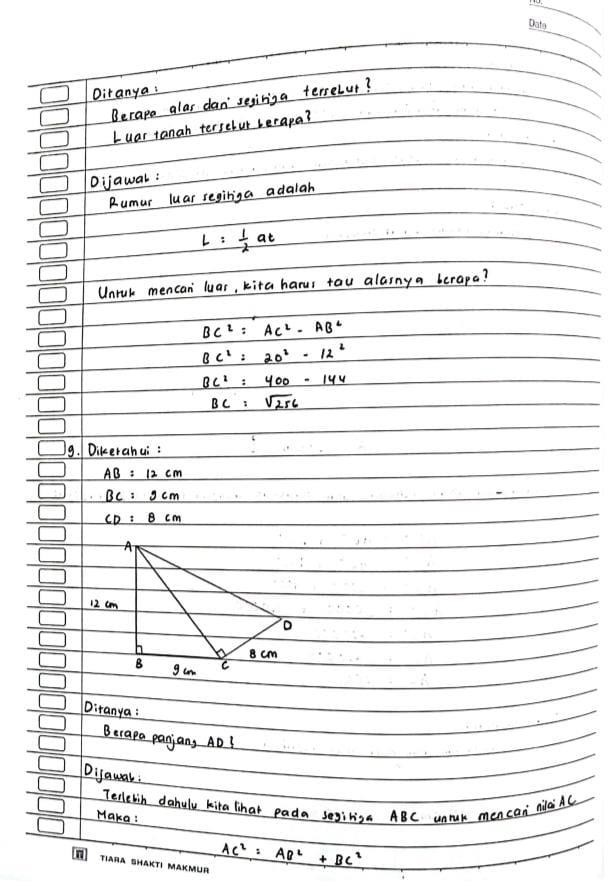 No.
Date
Ditanya:
Berapa alas dari segitiga tersebut?
Luas tanah tersebut berapa?
Dijawab:
Rumus luas segitiga adalah
L = 1/2 at
Untuk mencari luas, kita harus tau alasnya berapa?
BC² = AC² - AB²
BC² = 20² - 12²
BC² = 400 - 144
BC = √256
9. Diketahui:
AB = 12 cm
BC = 9 cm
CD = 8 cm
A
12 cm
D
8 cm
B
9 cm
C
Ditanya:
Berapa panjang AD?
Dijawab:
Terlebih dahulu kita lihat pada segitiga ABC untuk mencari nilai AC
Maka:
AC² = AB² + BC²
TIARA SHAKTI MAKMUR